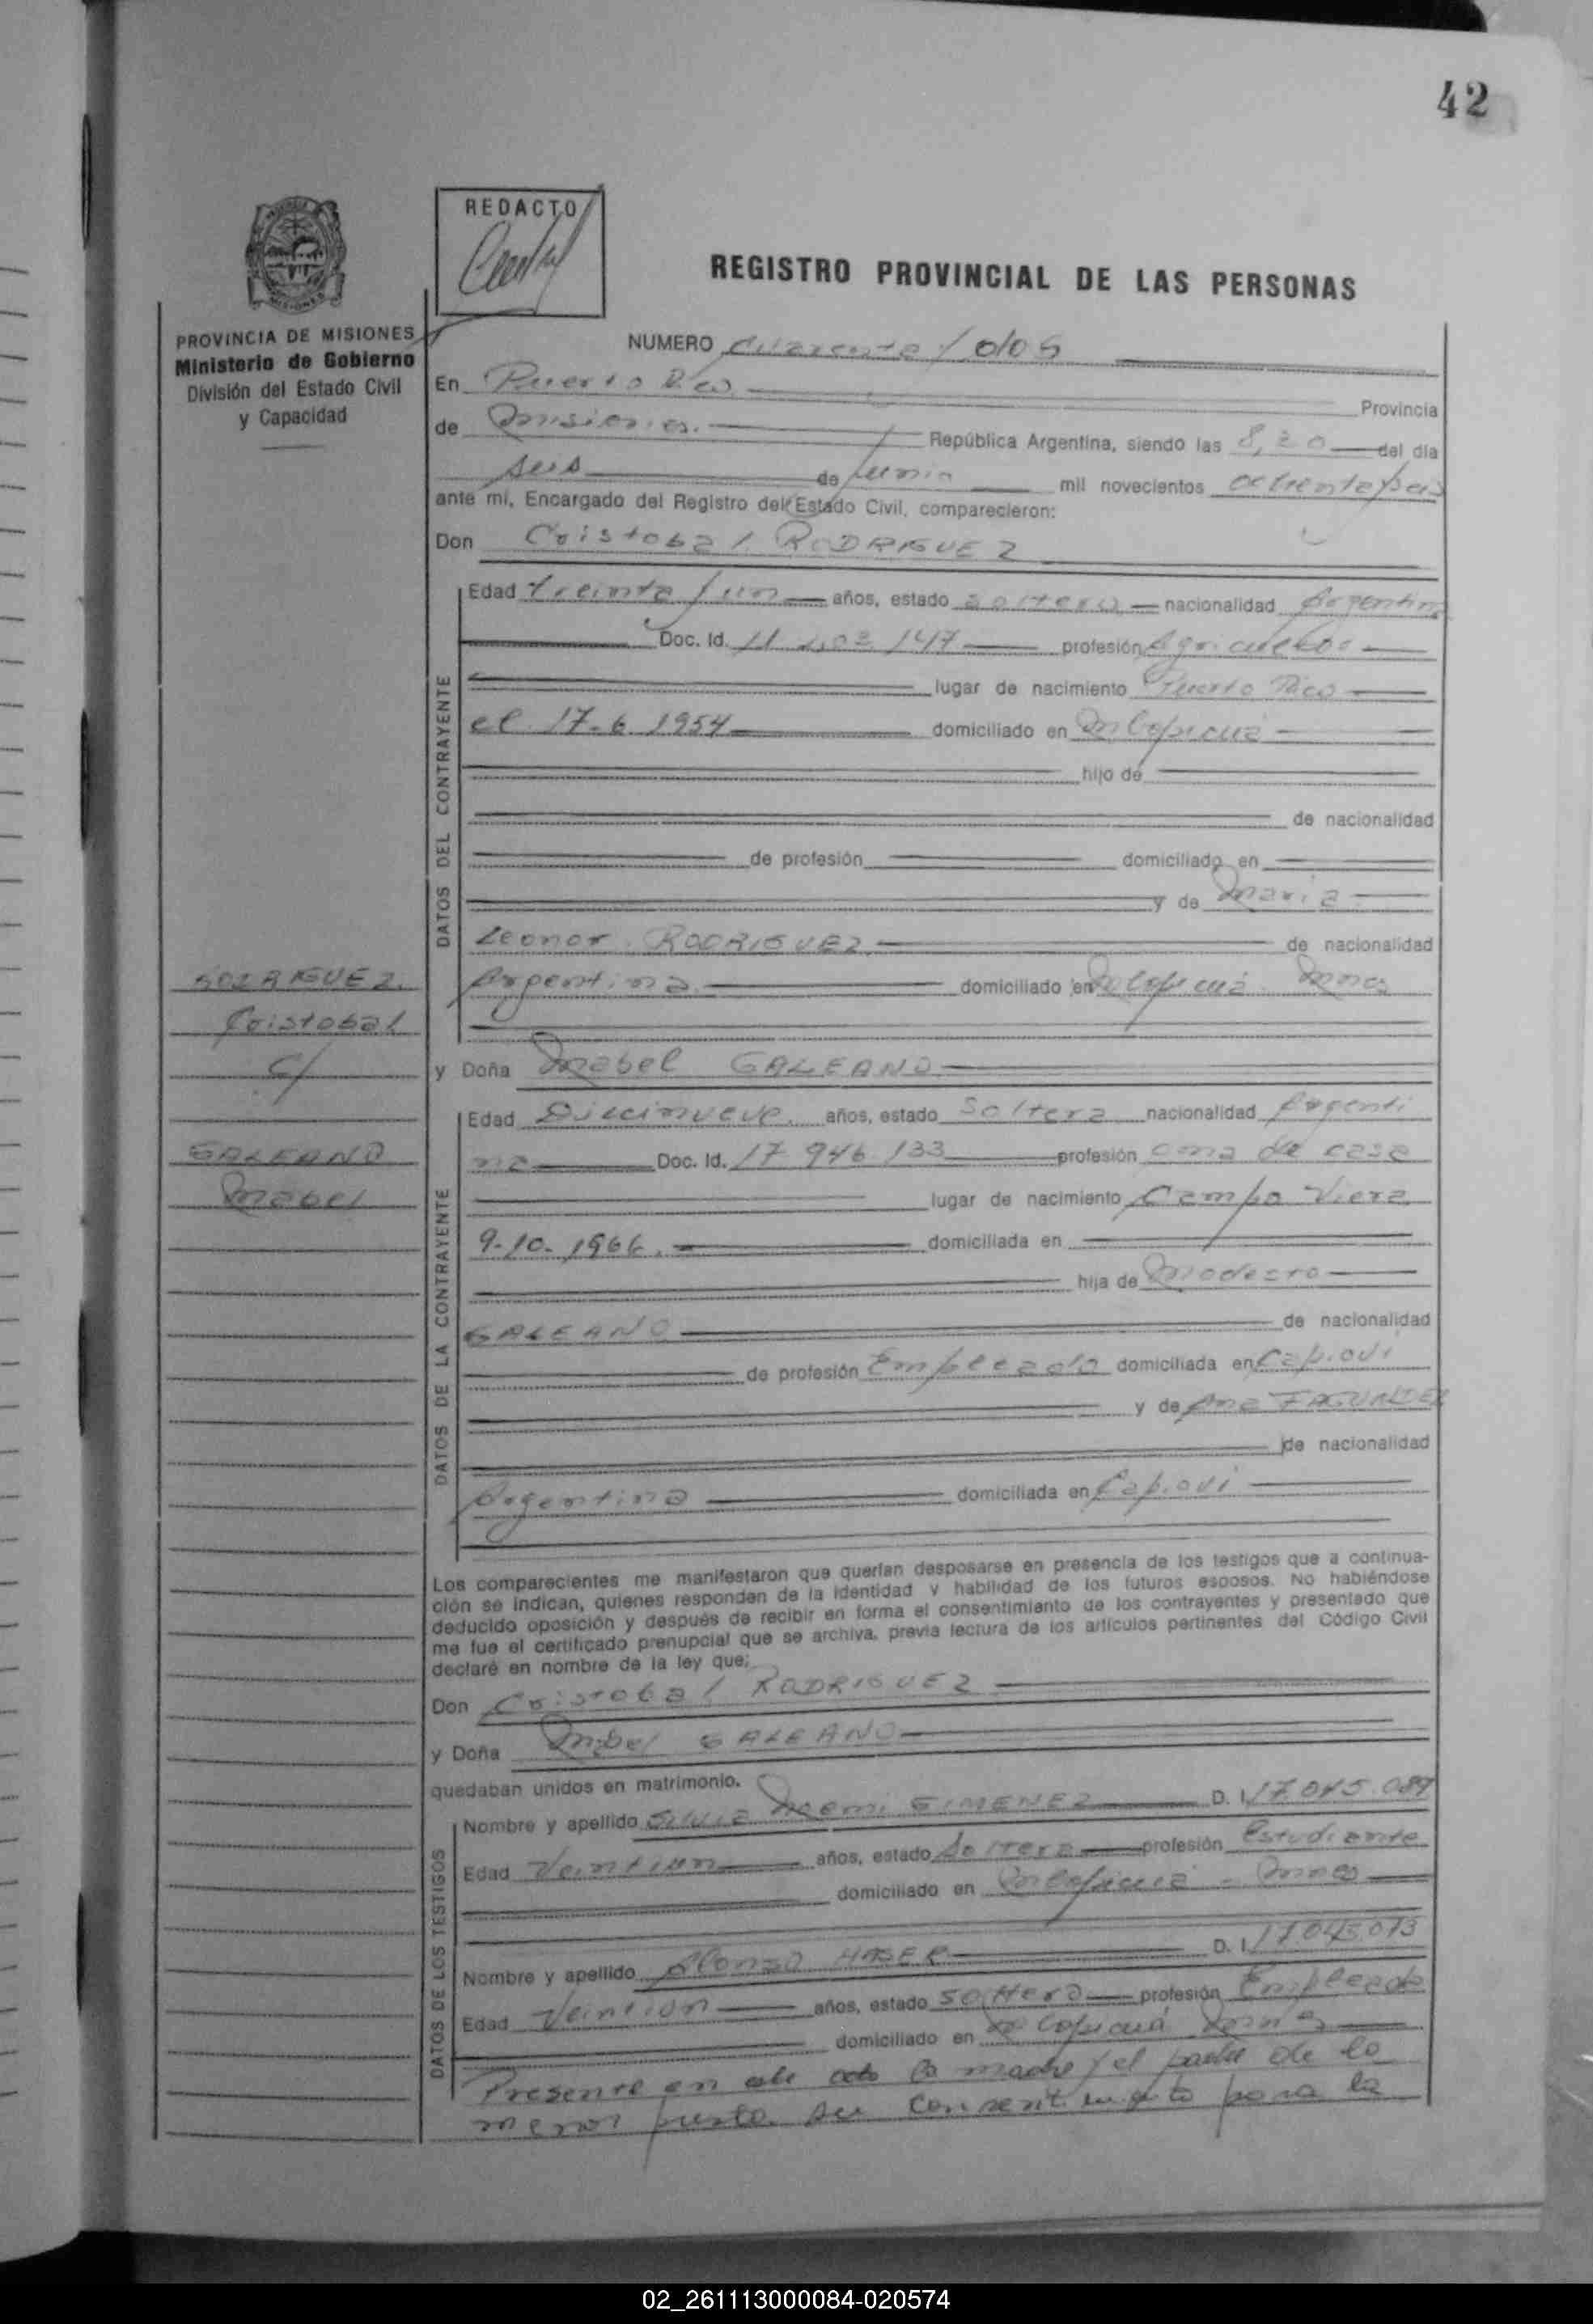 42
REDACTO
REGISTRO PROVINCIAL DE LAS PERSONAS
PROVINCIA DE MISIONES
Ministerio de Gobierno
División del Estado Civil
y Capacidad
NUMERO cuarenta / dos
En Puerto Rico Provincia
de Misiones. República Argentina, siendo las 8,20 del día
seis de junio mil novecientos ochenta/seis
ante mí, Encargado del Registro del Estado Civil, comparecieron:
Don Cristobal RODRIGUEZ
DATOS DEL CONTRAYENTE
Edad treinta / un años, estado soltero nacionalidad Argentina
Doc. Id. 11 147 profesión Agricultor
lugar de nacimiento Puerto Rico
el 17-6-1954 domiciliado en
hijo de
de nacionalidad
de profesión domiciliado en
y de Maria
Leonor RODRIGUEZ de nacionalidad
Argentina domiciliado en Mnes
RODRIGUEZ
Cristobal
c/
GALEANO
Mabel
y Doña Mabel GALEANO
DATOS DE LA CONTRAYENTE
Edad Diecinueve años, estado Soltera nacionalidad Argenti
na Doc. Id. 17 946 133 profesión ama de casa
lugar de nacimiento Campo Viera
9-10-1966. domiciliada en
hija de Modesto
GALEANO de nacionalidad
de profesión Empleado domiciliada en Capiovi
y de Ana FAGUNDEZ
de nacionalidad
Argentina domiciliada en Capiovi
Los comparecientes me manifestaron que querían desposarse en presencia de los testigos que a continua-
ción se indican, quienes responden de la identidad y habilidad de los futuros esposos. No habiéndose
deducido oposición y después de recibir en forma el consentimiento de los contrayentes y presentado que
me fue el certificado prenupcial que se archiva, previa lectura de los artículos pertinentes del Código Civil
declaré en nombre de la ley que:
Don Cristobal RODRIGUEZ
y Doña Mabel GALEANO
quedaban unidos en matrimonio.
DATOS DE LOS TESTIGOS
Nombre y apellido Silvia Noemi GIMENEZ D. I. 17.045.089
Edad Veintiun años, estado Soltera profesión Estudiante
domiciliado en Mnes
Nombre y apellido Alonzo HABER D. I. 17.045.013
Edad Veintiun años, estado soltero profesión Empleado
domiciliado en Mnes
Presente en este acto la madre / el padre de la
menor presta su consentimiento para la
02_261113000084-020574